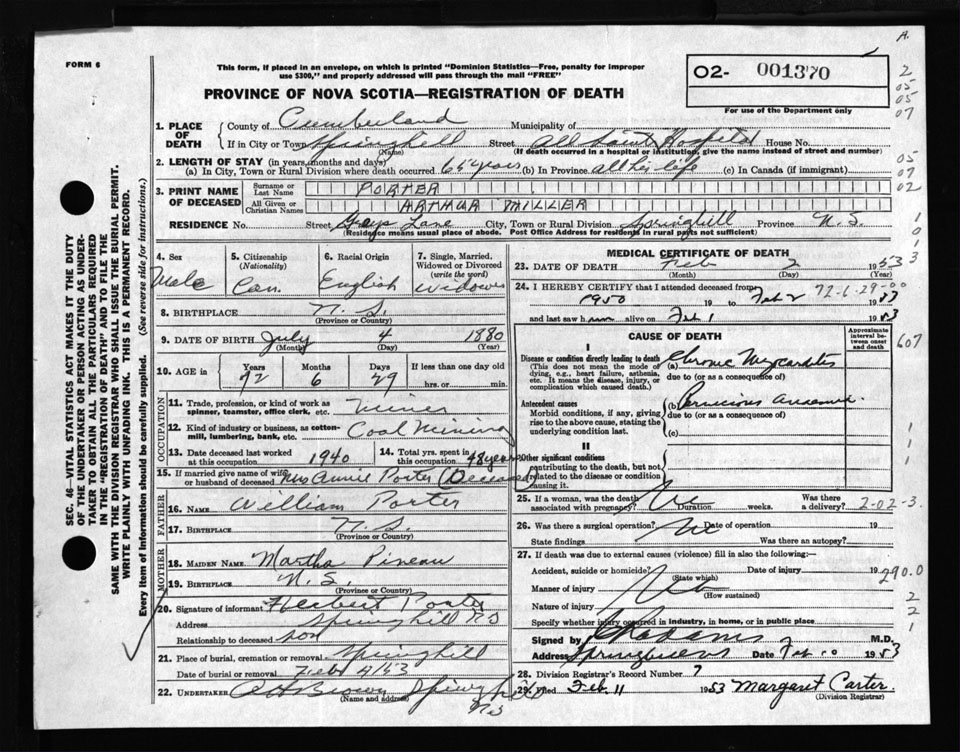 A.
FORM 6
This form, if placed in an envelope, on which is printed "Dominion Statistics—Free, penalty for improper
use $300," and properly addressed will pass through the mail "FREE"
02- 001370
For use of the Department only
PROVINCE OF NOVA SCOTIA—REGISTRATION OF DEATH
2
05
05
07
05
07
02
1. PLACE OF DEATH
County of Cumberland Municipality of
If in City or Town Springhill Street All Saints Hospital House No.
(Name) (If death occurred in a hospital or institution, give the name instead of street and number)
2. LENGTH OF STAY (in years, months and days)
(a) In City, Town or Rural Division where death occurred 65 years (b) In Province all his life (c) In Canada (if immigrant)
3. PRINT NAME OF DECEASED
Surname or Last Name PORTER
All Given or Christian Names ARTHUR MILLER
RESIDENCE No. Street Grays Lane City, Town or Rural Division Springhill Province N.S.
(Residence means usual place of abode. Post Office Address for residents in rural parts not sufficient)
4. Sex Male
5. Citizenship (Nationality) Can.
6. Racial Origin English
7. Single, Married, Widowed or Divorced (write the word) Widower
8. BIRTHPLACE N.S.
(Province or Country)
9. DATE OF BIRTH July 4 1880
(Month) (Day) (Year)
10. AGE in Years Months Days If less than one day old
72 6 29 hrs. or min.
OCCUPATION
11. Trade, profession, or kind of work as spinner, teamster, office clerk, etc. Miner
12. Kind of industry or business, as cotton-mill, lumbering, bank, etc. Coal Mining
13. Date deceased last worked at this occupation 1940
14. Total yrs. spent in this occupation 48 years
15. If married give name of wife or husband of deceased Mrs Annie Porter (Deceased)
FATHER
16. NAME William Porter
17. BIRTHPLACE N.S.
(Province or Country)
MOTHER
18. MAIDEN NAME Martha Pineau
19. BIRTHPLACE N.S.
(Province or Country)
20. Signature of informant Herbert Porter
Address Springhill NS
Relationship to deceased son
21. Place of burial, cremation or removal Springhill
Date of burial or removal Feb 4/53
22. UNDERTAKER Brown Springhill
(Name and address) NS
MEDICAL CERTIFICATE OF DEATH
23. DATE OF DEATH Feb 2 1953
(Month) (Day) (Year)
24. I HEREBY CERTIFY that I attended deceased from 72-6-29-00
1950 19 to Feb 2 1953
and last saw him alive on Feb 1 1953
CAUSE OF DEATH
Approximate interval between onset and death
607
I
Disease or condition directly leading to death (a) Chronic Myocarditis
(This does not mean the mode of dying, e.g., heart failure, asthenia, etc. It means the disease, injury, or complication which caused death.)
due to (or as a consequence of)
Antecedent causes (b) Pernicious Anaemia
Morbid conditions, if any, giving rise to the above cause, stating the underlying condition last.
due to (or as a consequence of)
(c)
II
Other significant conditions
contributing to the death, but not related to the disease or condition causing it.
25. If a woman, was the death associated with pregnancy? No Duration weeks. Was there a delivery?
2-02-3
26. Was there a surgical operation? No Date of operation 19
State findings Was there an autopsy?
27. If death was due to external causes (violence) fill in also the following:—
Accident, suicide or homicide? Date of injury 19
(State which)
290.0
Manner of injury No
(How sustained)
Nature of injury
Specify whether injury occurred in industry, in home, or in public place
Signed by Adams M.D.
Address Date Feb 10 1953
28. Division Registrar's Record Number 7
29. Filed Feb 11 1953 Margaret Carter
(Division Registrar)
SEC. 46—VITAL STATISTICS ACT MAKES IT THE DUTY
OF THE UNDERTAKER OR PERSON ACTING AS UNDER-
TAKER TO OBTAIN ALL THE PARTICULARS REQUIRED
IN THE "REGISTRATION OF DEATH" AND TO FILE THE
SAME WITH THE DIVISION REGISTRAR WHO SHALL ISSUE THE BURIAL PERMIT.
WRITE PLAINLY WITH UNFADING INK. THIS IS A PERMANENT RECORD.
Every item of information should be carefully supplied. (See reverse side for instructions.)